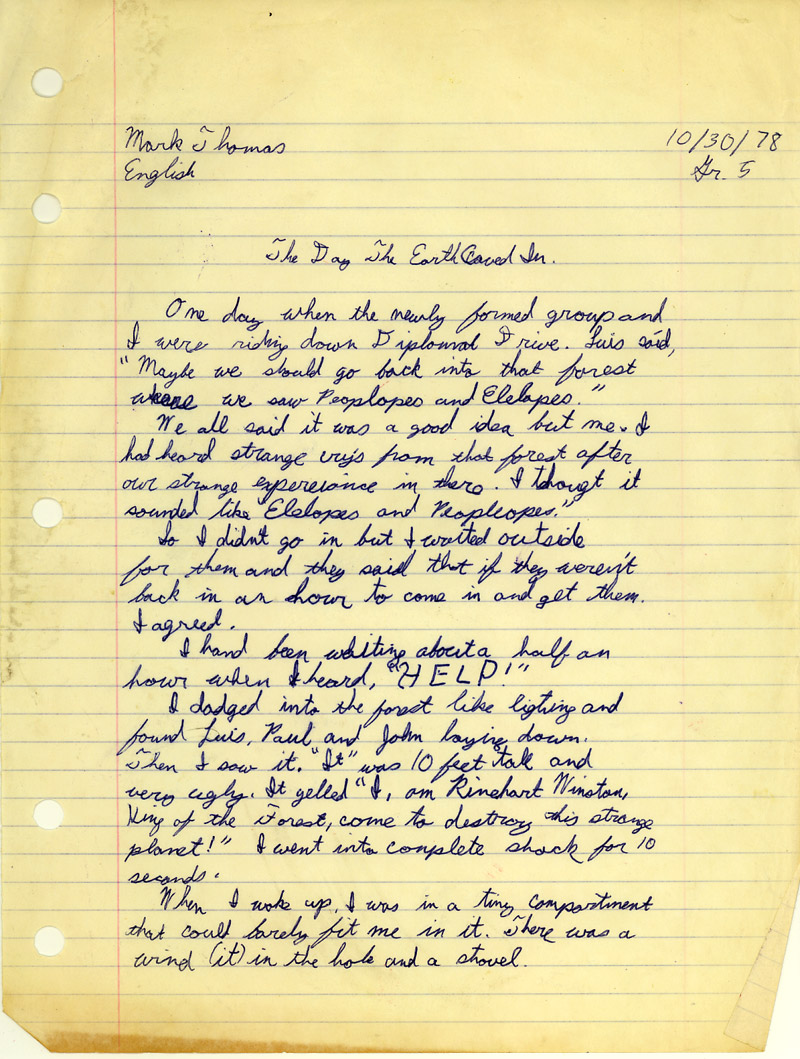 Mark Thomas 10/30/78
English Gr. 5
The Day The Earth Caved In.
One day when the newly formed group and
I were riding down Diplomat Drive. Luis said,
"Maybe we should go back into that forest
where we saw Peoplopes and Elelopes."
We all said it was a good idea but me. I
had heard strange crys from that forest after
our strange expereriance in there. I thougt it
sounded like "Elelopes and Peoplopes."
So I didn't go in but I waited outside
for them and they said that if they weren't
back in an hour to come in and get them.
I agreed.
I hand been waiting about a half an
hour when I heard, "HELP!"
I dodged into the forest like ligting and
found Luis, Paul and John laying down.
Then I saw it. "It" was 10 feet tall and
very ugly. It yelled "I, am Rinehart Winston,
King of the Forest, come to destroy this strange
planet!" I went into complete shock for 10
seconds.
When I woke up, I was in a tiny compartment
that could barely fit me in it. There was a
wind (it) in the hole and a shovel.